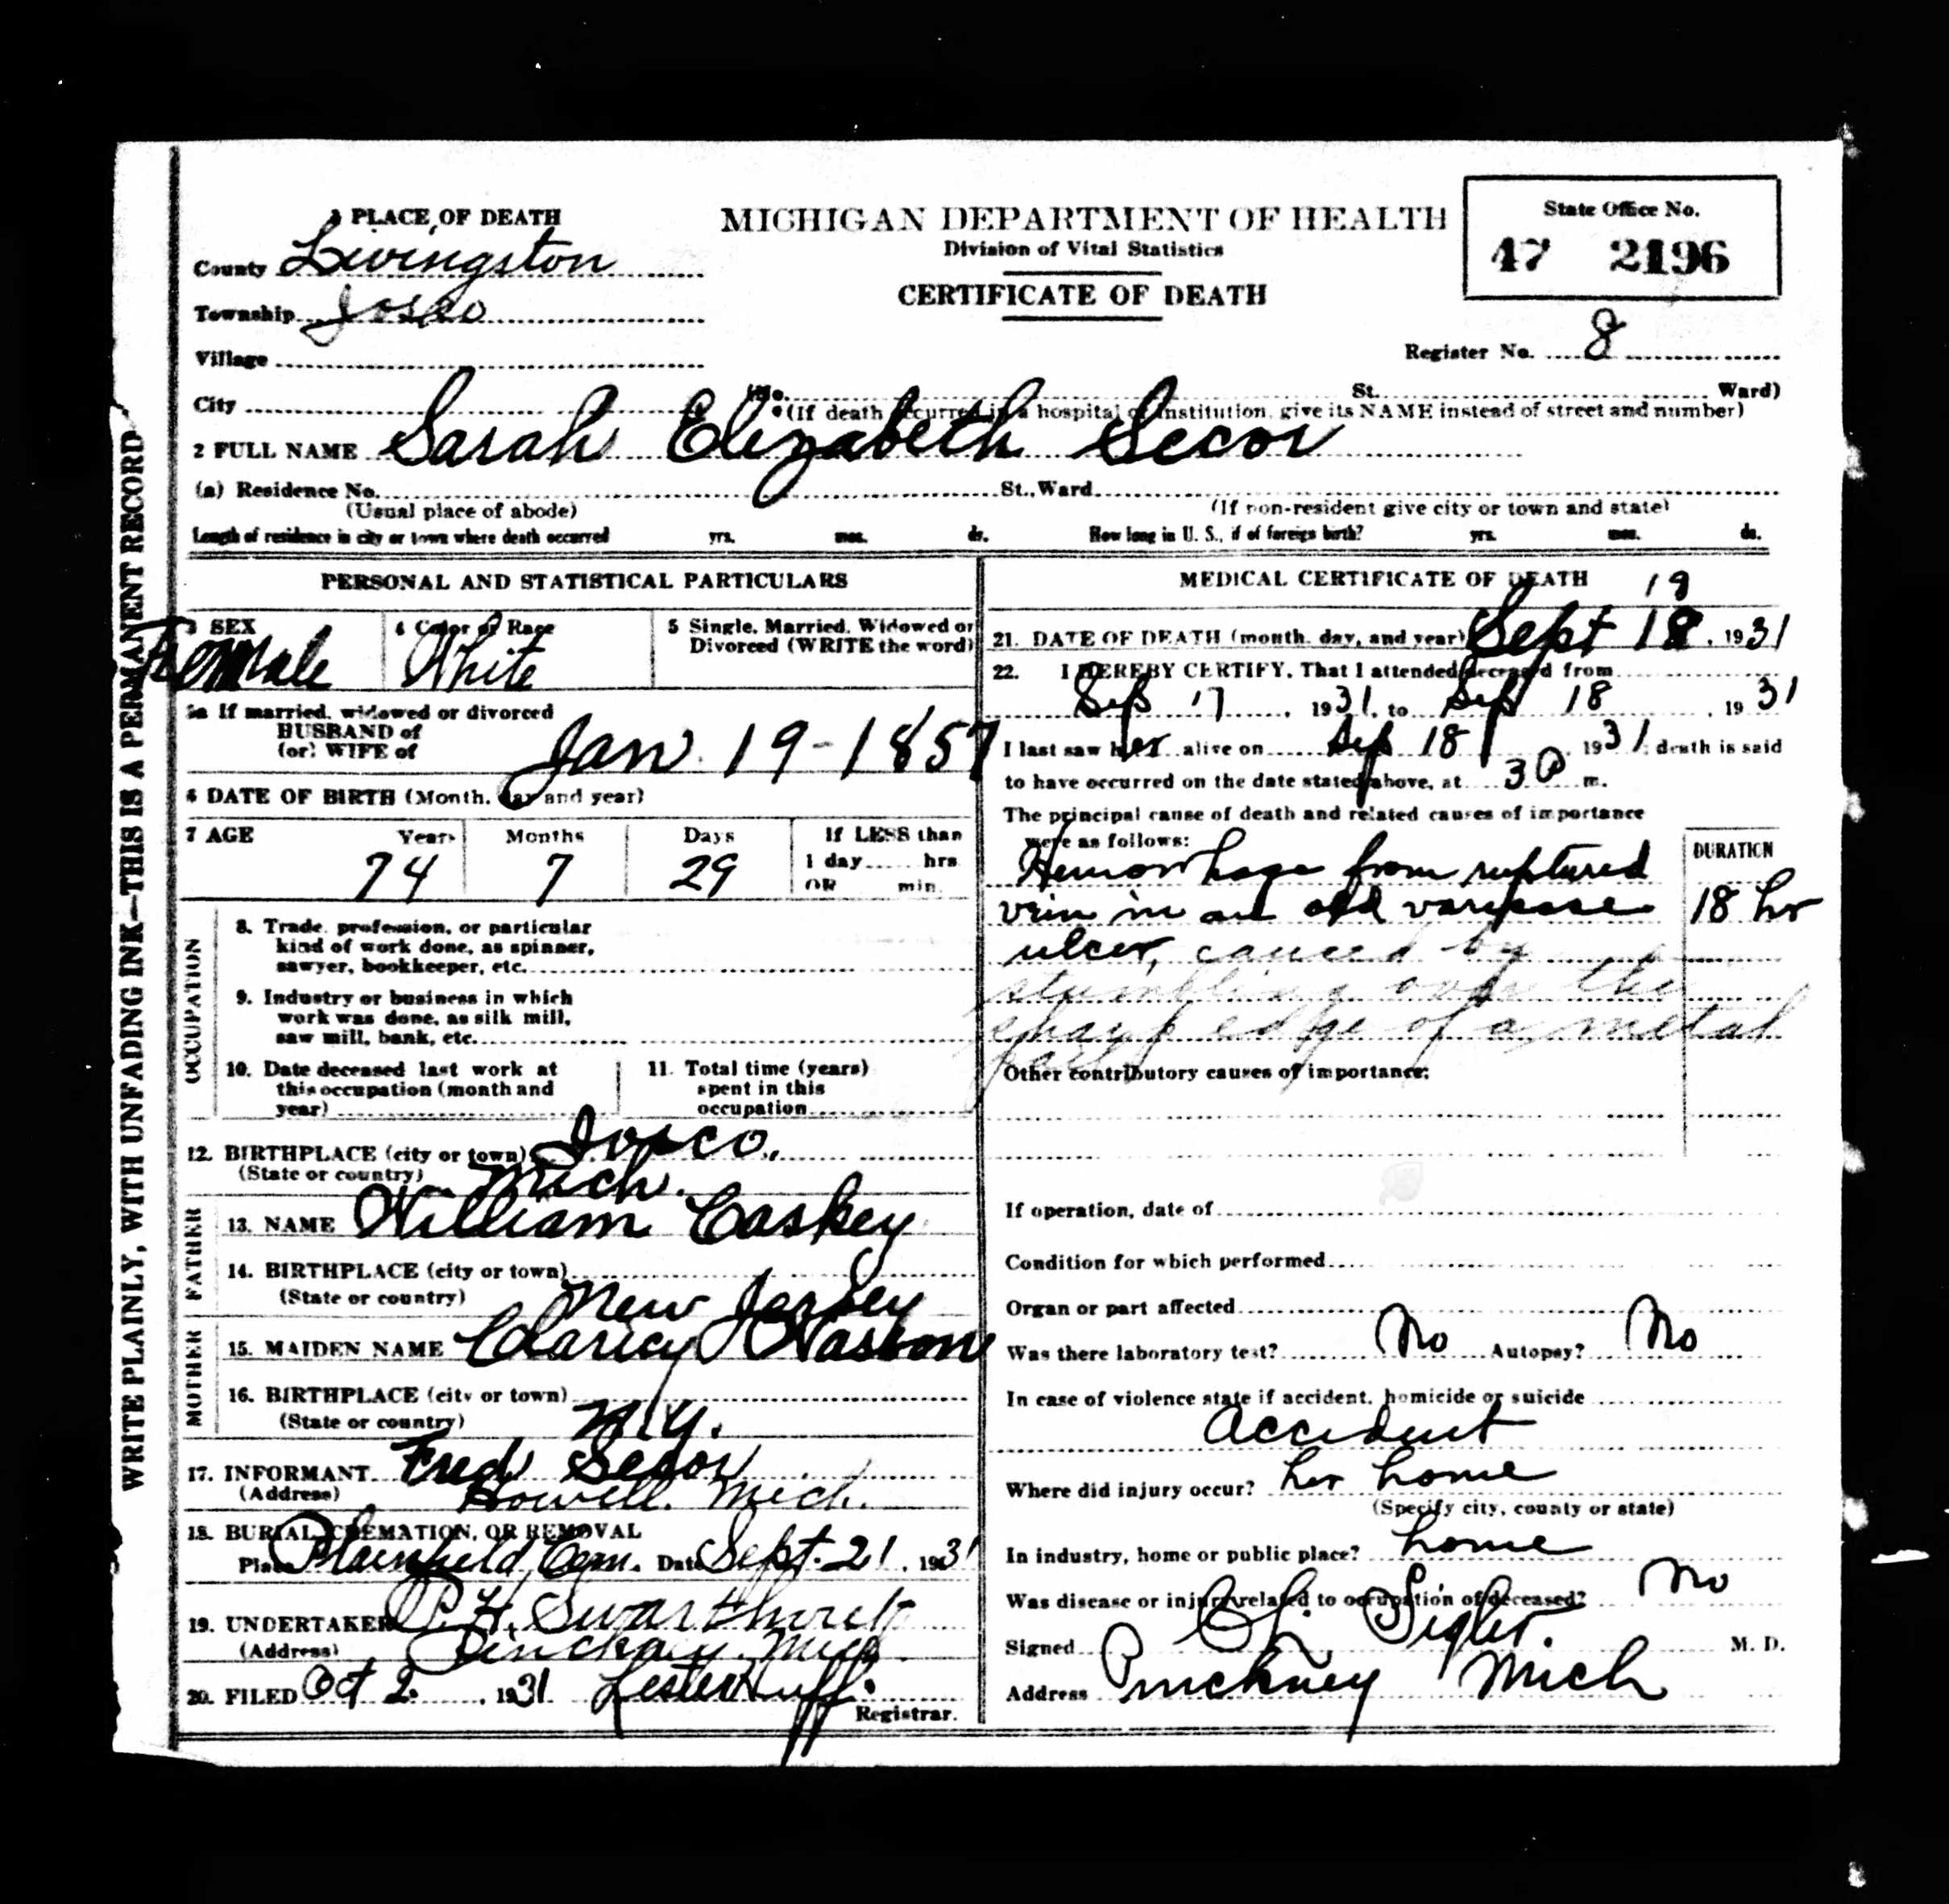 1 PLACE OF DEATH
MICHIGAN DEPARTMENT OF HEALTH
Division of Vital Statistics
CERTIFICATE OF DEATH
State Office No.
47 2196
County Livingston
Township Iosco
Village
Register No. 8
City
(No. St. Ward)
(If death occurred in a hospital or institution, give its NAME instead of street and number)
2 FULL NAME Sarah Elizabeth Secor
(a) Residence No. St., Ward
(Usual place of abode) (If non-resident give city or town and state)
Length of residence in city or town where death occurred yrs. mos. ds. How long in U. S., if of foreign birth? yrs. mos. ds.
WRITE PLAINLY, WITH UNFADING INK—THIS IS A PERMANENT RECORD
PERSONAL AND STATISTICAL PARTICULARS
3 SEX
Female
4 Color or Race
White
5 Single, Married, Widowed or
Divorced (WRITE the word)
5a If married, widowed or divorced
HUSBAND of
(or) WIFE of
Jan. 19-1857
6 DATE OF BIRTH (Month, day and year)
7 AGE Years Months Days If LESS than
74 7 29 1 day hrs
OR min.
OCCUPATION
8. Trade, profession, or particular
kind of work done, as spinner,
sawyer, bookkeeper, etc.
9. Industry or business in which
work was done, as silk mill,
saw mill, bank, etc.
10. Date deceased last work at
this occupation (month and
year)
11. Total time (years)
spent in this
occupation
12. BIRTHPLACE (city or town) Iosco,
(State or country) Mich.
FATHER
13. NAME William Caskey
14. BIRTHPLACE (city or town)
(State or country) New Jersey
MOTHER
15. MAIDEN NAME Claricy
16. BIRTHPLACE (city or town)
(State or country) N.Y.
17. INFORMANT Fred Secor
(Address) Howell, Mich.
18. BURIAL, CREMATION, OR REMOVAL
Place Plainfield Cem. Date Sept. 21, 1931
19. UNDERTAKER P. H. Swarthout
(Address) Pinckney, Mich.
20. FILED Oct 2, 1931 Lester Huff.
Registrar.
MEDICAL CERTIFICATE OF DEATH
18
21. DATE OF DEATH (month, day, and year) Sept 18, 1931
22. I HEREBY CERTIFY, That I attended deceased from
Sep 17, 1931, to Sep 18, 1931
I last saw her alive on Sep 18, 1931; death is said
to have occurred on the date stated above, at 3 P m.
The principal cause of death and related causes of importance
were as follows:
DURATION
Hemorrhage from ruptured
vein in an old varicose 18 hr
ulcer, caused by
stumbling over the
sharp edge of a metal
pail
Other contributory causes of importance:
If operation, date of
Condition for which performed
Organ or part affected
Was there laboratory test? No Autopsy? No
In case of violence state if accident, homicide or suicide
Accident
Where did injury occur? her home
(Specify city, county or state)
In industry, home or public place? home
Was disease or injury related to occupation of deceased? No
Signed Sigler. M. D.
Address Pinckney Mich